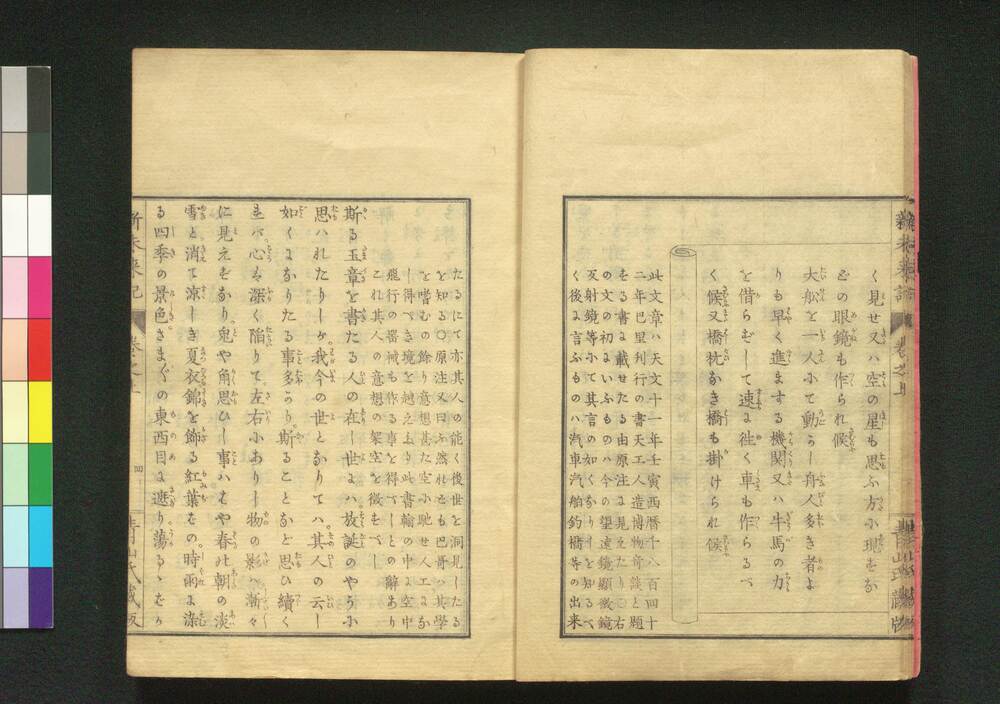 く見せ又ハ空の星も思ふ方小現をな
どの眼鏡も作られ候
大舩を一人小て動らし舟人多き者よ
りも早く進まする機関又ハ牛馬の力
を借らずして速に往く車も作らるべ
く候又橋杭なき橋も掛けられ候
此文章ハ天文十一年壬寅西暦千八百四十
二年巴里刋行の書天工人造博物奇談と題
せる書に載せたる由原注に見えたり〇右
の文の初にいふものハ今の望遠鏡顯微鏡
反射鏡等小して其言の如くなりしを知るべ
く後に言ふものハ汽車汽舶釣橋等の出来
たるにて亦其人の能く後世を洞見したる
を知る〇原注又曰ふ然れとも巴哥ハ其學
を嗜むの餘り意想甚た空小馳せ人工にな
し得べき境を越え此書翰の中に空中
飛行の器械も作る事を得べしとの解あり
これ其人の意想の架空を徴すべし
斯る玉章を書たる人の在し世にハ放誕のやう小
思ハれたりしが我今の世となりてハ其人の云し
如くになりたる事多かり斯ることなを思ひ續く
れバ心も深く陥りて左右小ありし物の影ハ漸々
に見えずなり鬼や角思ひし事ハはや春の朝の淡
雪と消て涼しき夏衣錦を飾る紅葉をの時雨に染
る四季の景色さまざまの東西目に遮り蕩るゝをり
新未来記
巻之上
四
青山氏蔵版